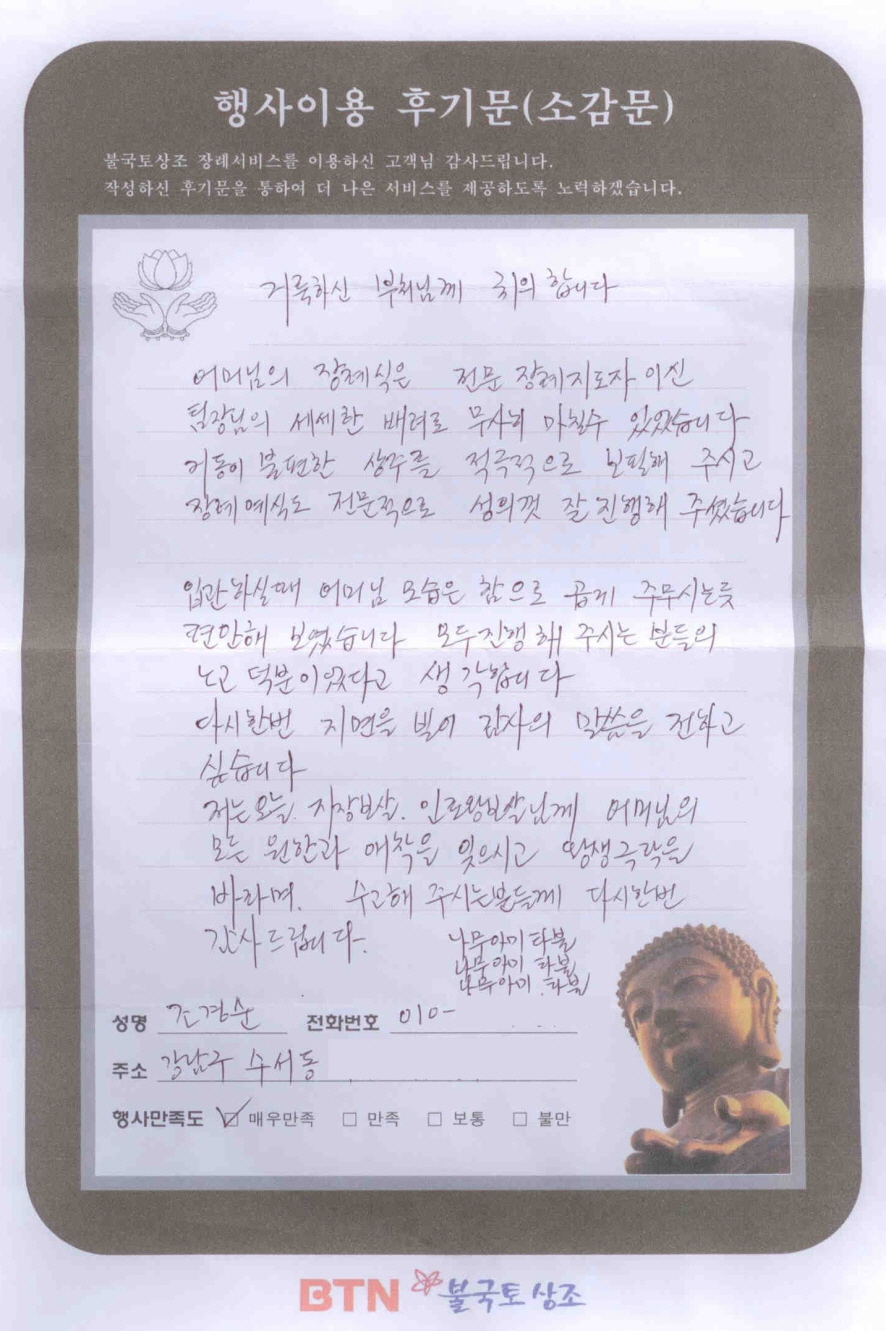 행사이용 후기문(소감문)
불국토상조 장례서비스를 이용하신 고객님 감사드립니다.
작성하신 후기문을 통하여 더 나은 서비스를 제공하도록 노력하겠습니다.
거룩하신 부처님께 귀의 합니다
어머님의 장례식은 전문 장례지도자 이신
팀장님의 세세한 배려로 무사히 마칠수 있었습니다
거동이 불편한 상주를 적극적으로 보필해 주시고
장례예식도 전문적으로 성의껏 잘 진행해 주셨습니다
입관하실때 어머님 모습은 참으로 곱게 주무시는듯
편안해 보였습니다 모두진행해 주시는 분들의
노고 덕분이었다고 생각합니다
다시한번 지면을 빌어 감사의 말씀을 전하고
싶습니다
저는오늘. 지장보살. 인로왕보살님께 어머님의
모든 원한과 애착을 잊으시고 왕생극락을
바라며. 수고해 주시는분들께 다시한번
감사드립니다.
나무아미타불
나무아미 타불
나무아미 타불
성명 조경순 전화번호 010-
주소 강남구 수서동
행사만족도 ☑ 매우만족 □ 만족 □ 보통 □ 불만
BTN 불국토상조